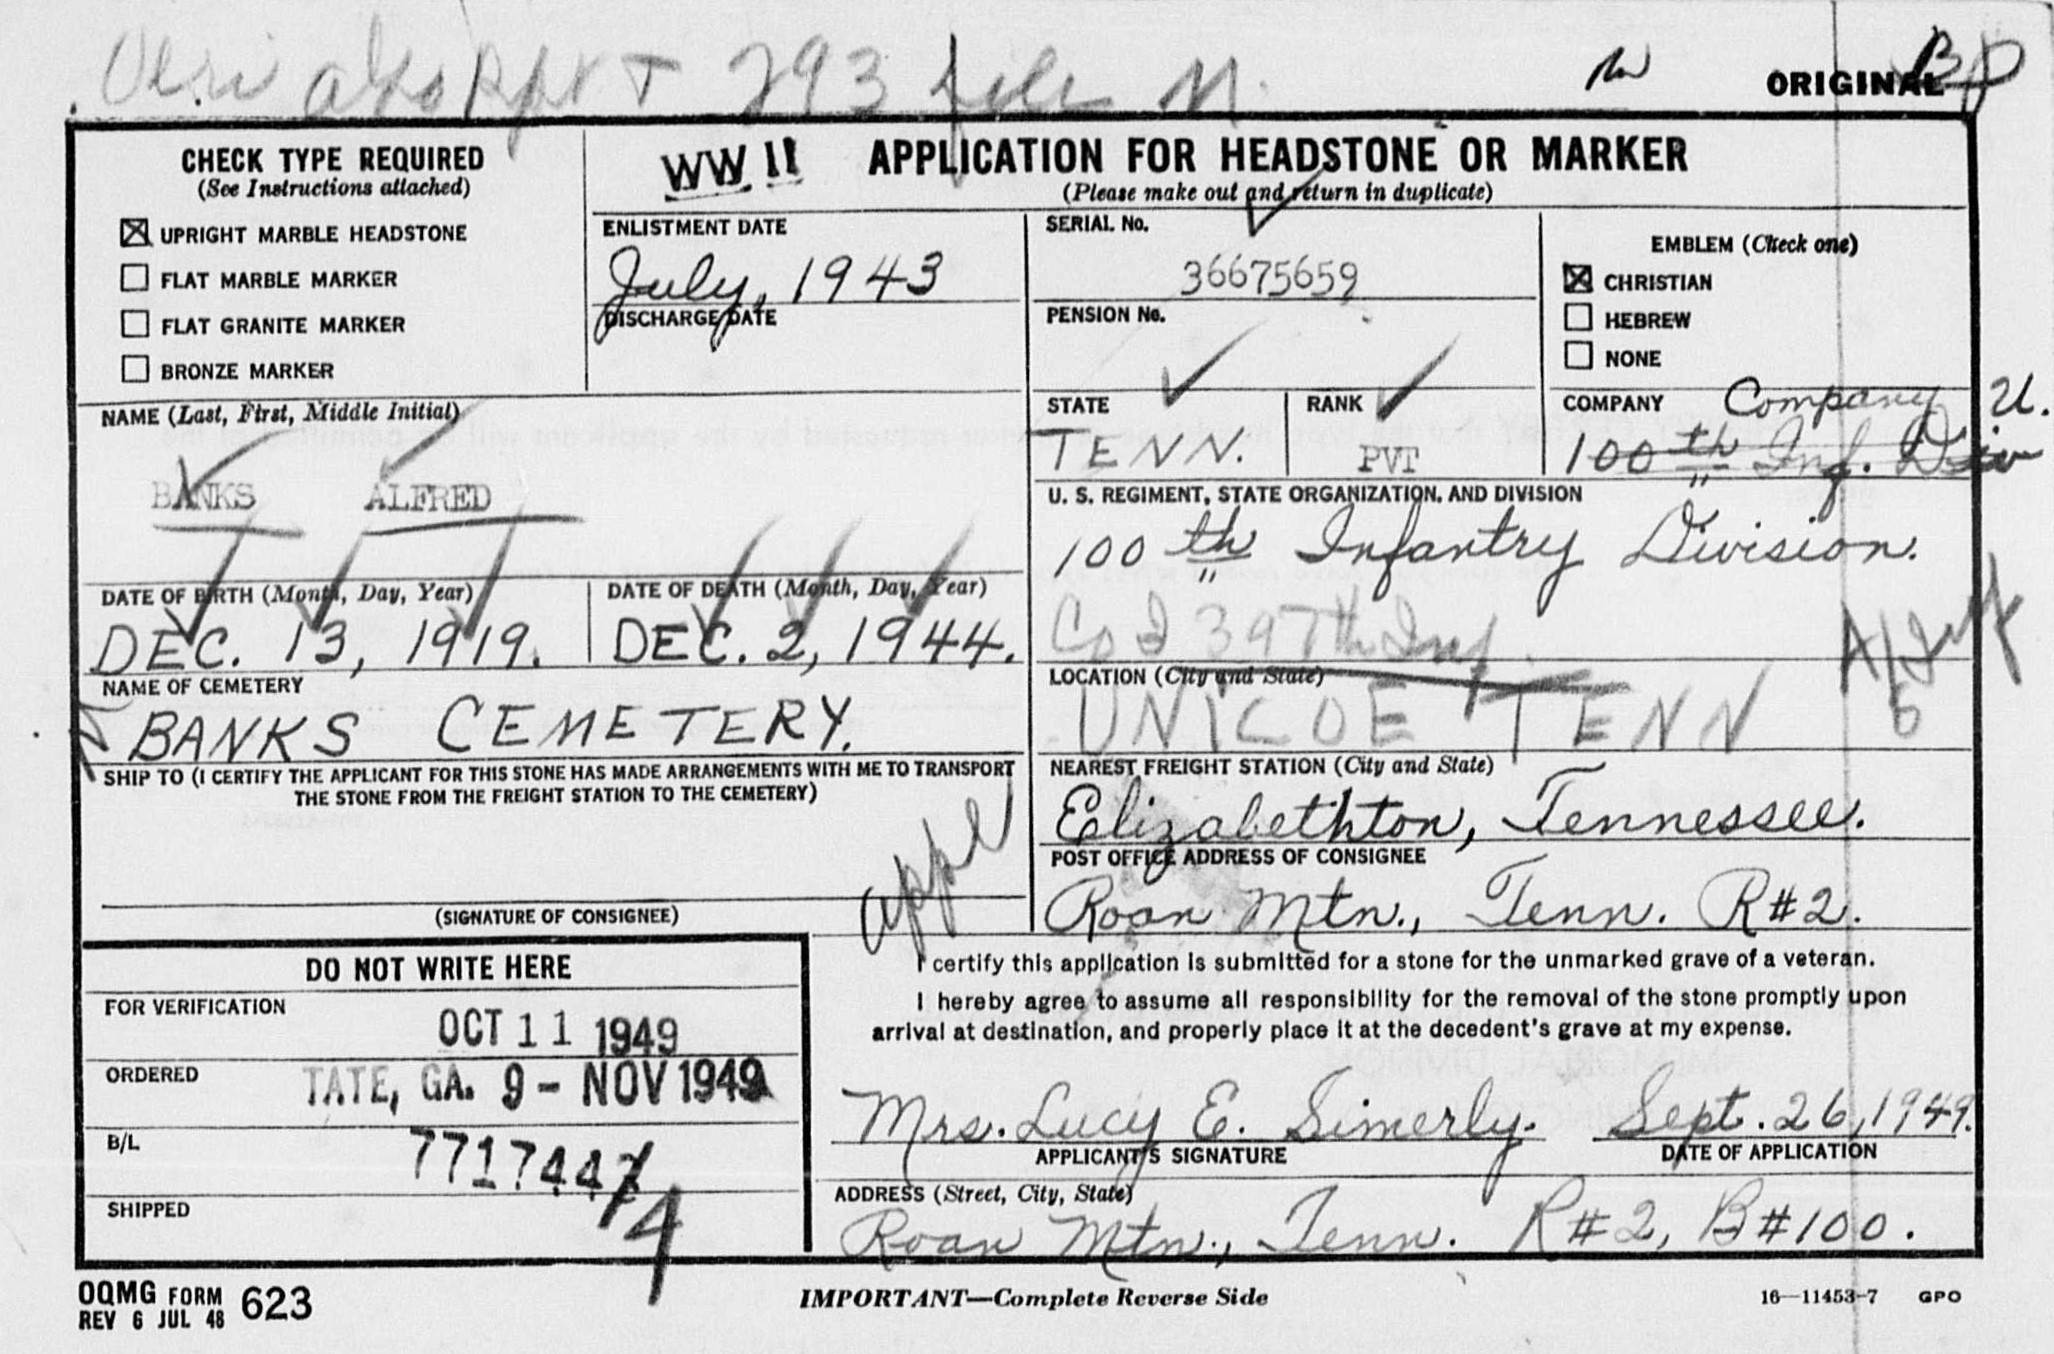 293 file M.
ORIGINAL
CHECK TYPE REQUIRED
(See Instructions attached)
UPRIGHT MARBLE HEADSTONE
FLAT MARBLE MARKER
FLAT GRANITE MARKER
BRONZE MARKER
WW II
APPLICATION FOR HEADSTONE OR MARKER
(Please make out and return in duplicate)
ENLISTMENT DATE
July, 1943
DISCHARGE DATE
SERIAL No.
36675659
PENSION No.
EMBLEM (Check one)
CHRISTIAN
HEBREW
NONE
NAME (Last, First, Middle Initial)
BANKS ALFRED
STATE
TENN.
RANK
PVT
COMPANY Company U.
100th Inf. Div
U. S. REGIMENT, STATE ORGANIZATION, AND DIVISION
100th Infantry Division.
Co I 397th Inf.
DATE OF BIRTH (Month, Day, Year)
DEC. 13, 1919.
DATE OF DEATH (Month, Day, Year)
DEC. 2, 1944.
NAME OF CEMETERY
BANKS CEMETERY.
LOCATION (City and State)
UNICOE TENN
SHIP TO (I CERTIFY THE APPLICANT FOR THIS STONE HAS MADE ARRANGEMENTS WITH ME TO TRANSPORT
THE STONE FROM THE FREIGHT STATION TO THE CEMETERY)
appl
(SIGNATURE OF CONSIGNEE)
NEAREST FREIGHT STATION (City and State)
Elizabethton, Tennessee.
POST OFFICE ADDRESS OF CONSIGNEE
Roan Mtn., Tenn. R#2.
DO NOT WRITE HERE
FOR VERIFICATION
OCT 11 1949
ORDERED
TATE, GA. 9 - NOV 1949
B/L
7717447
4
SHIPPED
I certify this application is submitted for a stone for the unmarked grave of a veteran.
I hereby agree to assume all responsibility for the removal of the stone promptly upon
arrival at destination, and properly place it at the decedent's grave at my expense.
Mrs. Lucy E. Simerly. Sept. 26, 1949.
APPLICANT'S SIGNATURE DATE OF APPLICATION
ADDRESS (Street, City, State)
Roan Mtn., Tenn. R#2, B#100.
OQMG FORM 623
REV 6 JUL 48
IMPORTANT—Complete Reverse Side
16—11453-7 GPO